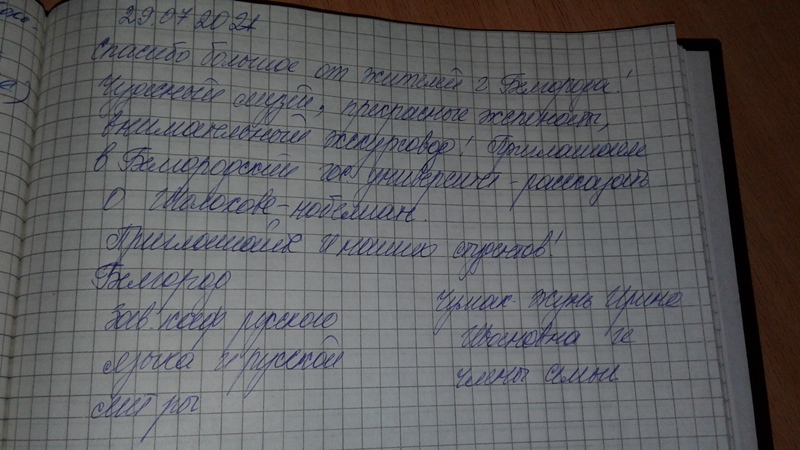 29.07.2021
Спасибо большое от жителей г. Белгорода!
Чудесный музей, прекрасные экспонаты,
внимательный экскурсовод! Приглашаем
в Белгородский гос. университет - рассказать
о Шолохове-нобелиан.
Приглашайте и наших студентов!
Белгород
Зав. каф. русского
языка и русской
лит-ры
Чумак-Жунь Ирина
Ивановна и
члены семьи